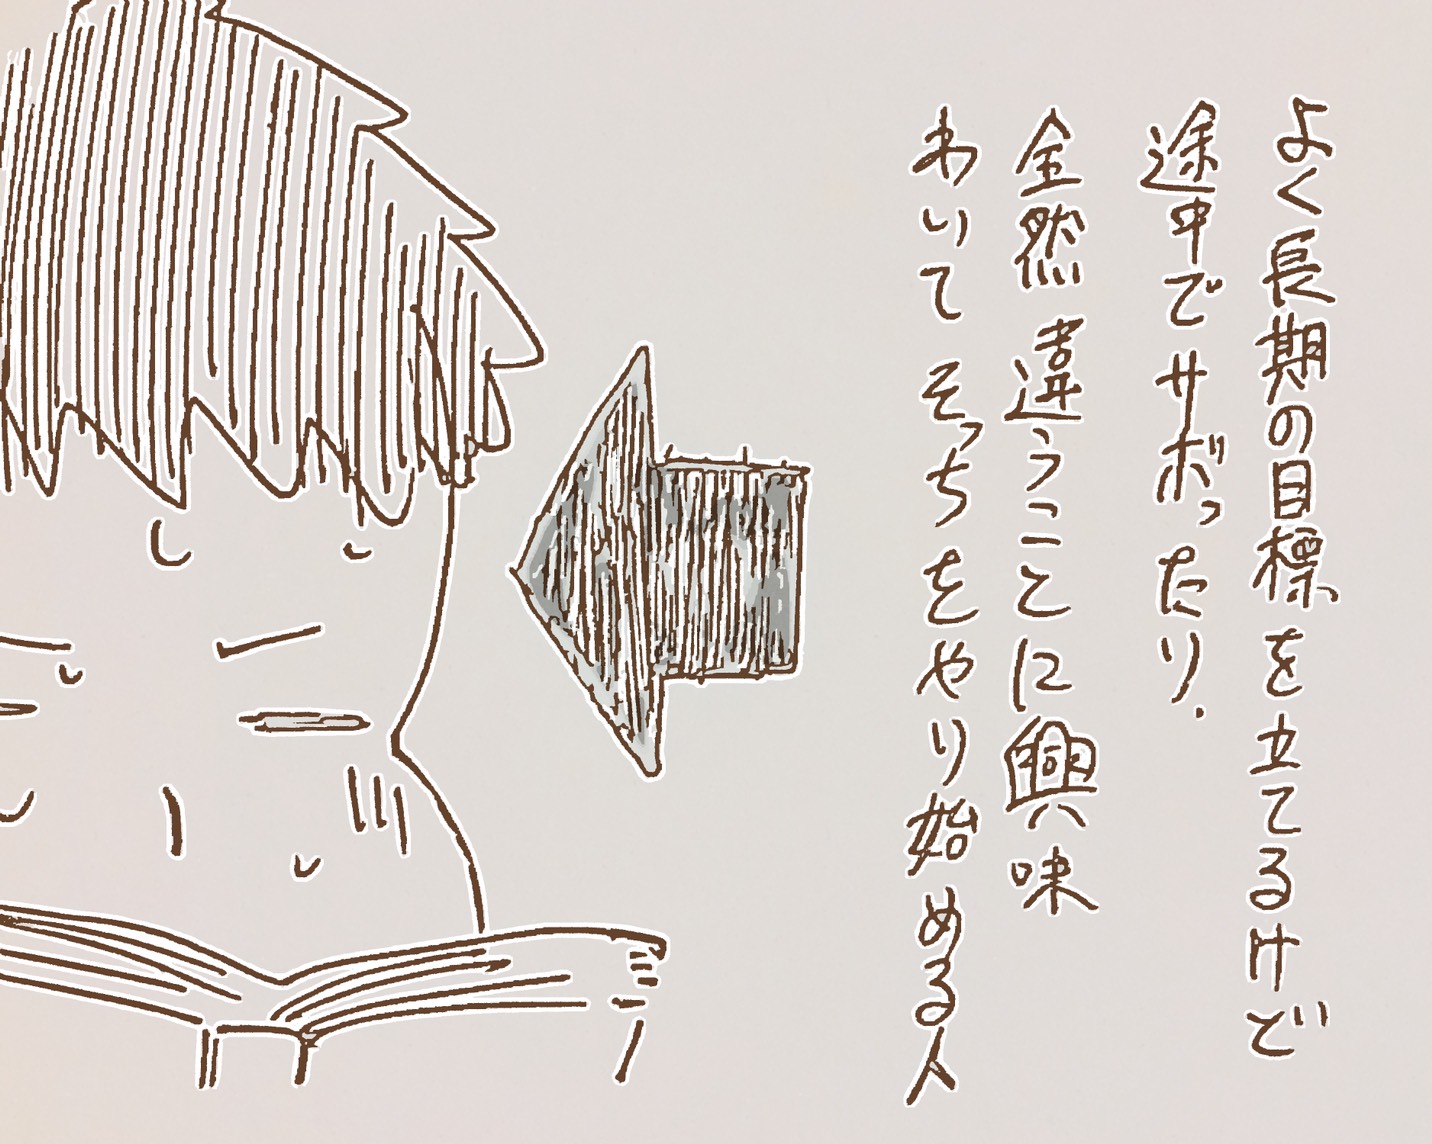 よく長期の目標を立てるけど
途中でサボったり.
全然違うことに興味
わいてそっちをやり始める人